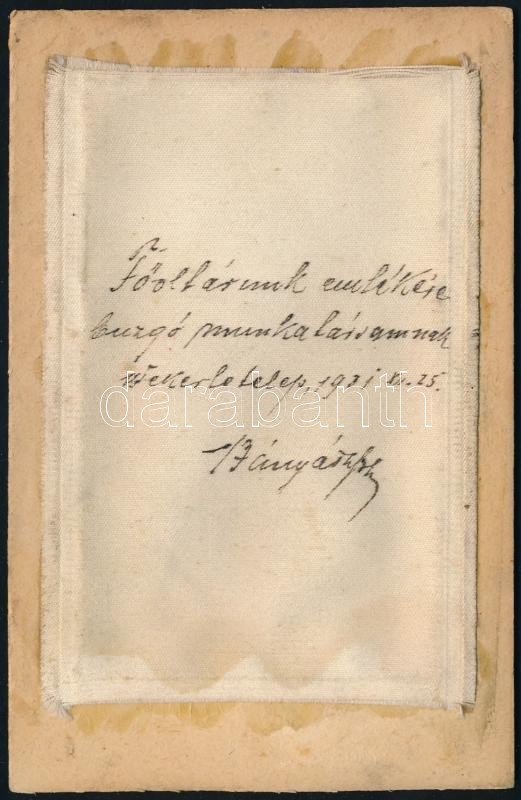 Főoltárunk emlékére
buzgó munkatársamnak
Wekerletelep, 1931 XI. 25.
darabanth